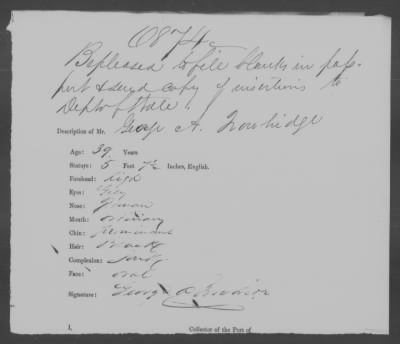 10874
Be pleased to file blanks in pass-
port & send copy of insertions to
Dept of State.
Description of Mr. George A. Trowbridge
Age: 39 Years
Stature: 5 Feet 7½ Inches, English.
Forehead: high
Eyes: Grey
Nose: Roman
Mouth: ordinary
Chin: Prominent
Hair: Black
Complexion: Dark
Face: oval
Signature: George A
I. Collector of the Port of